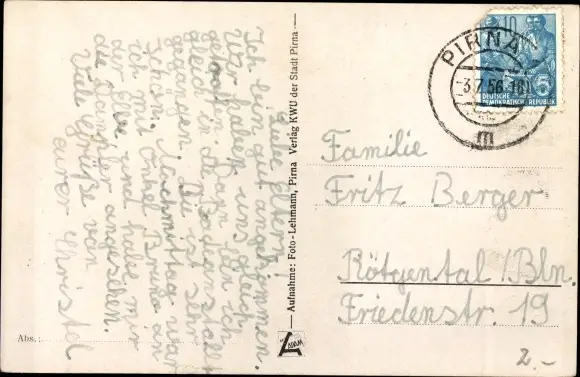 Liebe Eltern!
Ich bin gut angekommen.
Wir haben uns gleich
getroffen. Dann bin ich
gleich in die Badeanstalt
gegangen. Die ist sehr
schön. Nachmittag war
ich mit Onkel Bruno an
der Elbe, und habe mir
die Dampfer angesehen.
Viele Grüße von
eurer Christel
Abs.:
Aufnahme: Foto-Lehmann, Pirna Verlag KWU der Stadt Pirna
ADAM
PIRNA
-3.7.56.-18
m
10
5
DEUTSCHE
DEMOKRATISCHE REPUBLIK
Familie
Fritz Berger
Rötgental/Bln.
Friedenstr. 19
2.-